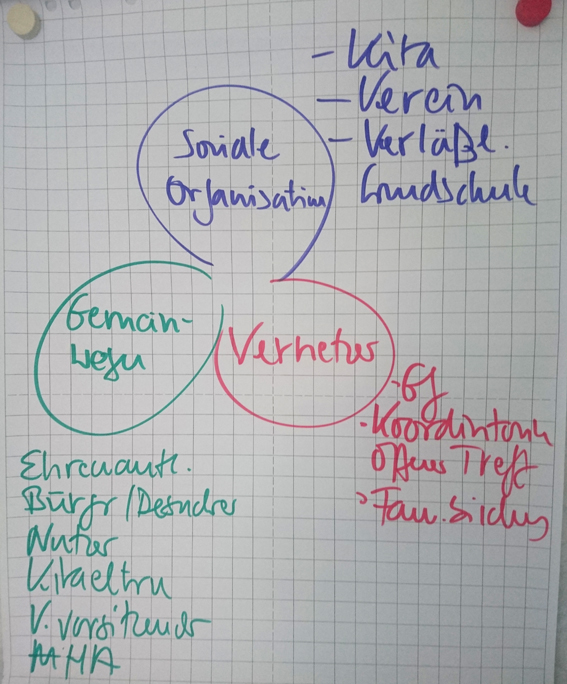 - Kita
- Verein
- Verläßl.
Grundschule
Soziale
Organisation
Gemein-
wesen
Vernetzer
- Gf
- Koordinatorin
Offener Treff
Ehrenamtl.
Bürger/Besucher
Nutzer
Kitaeltern
V. vorsitzender
MHA